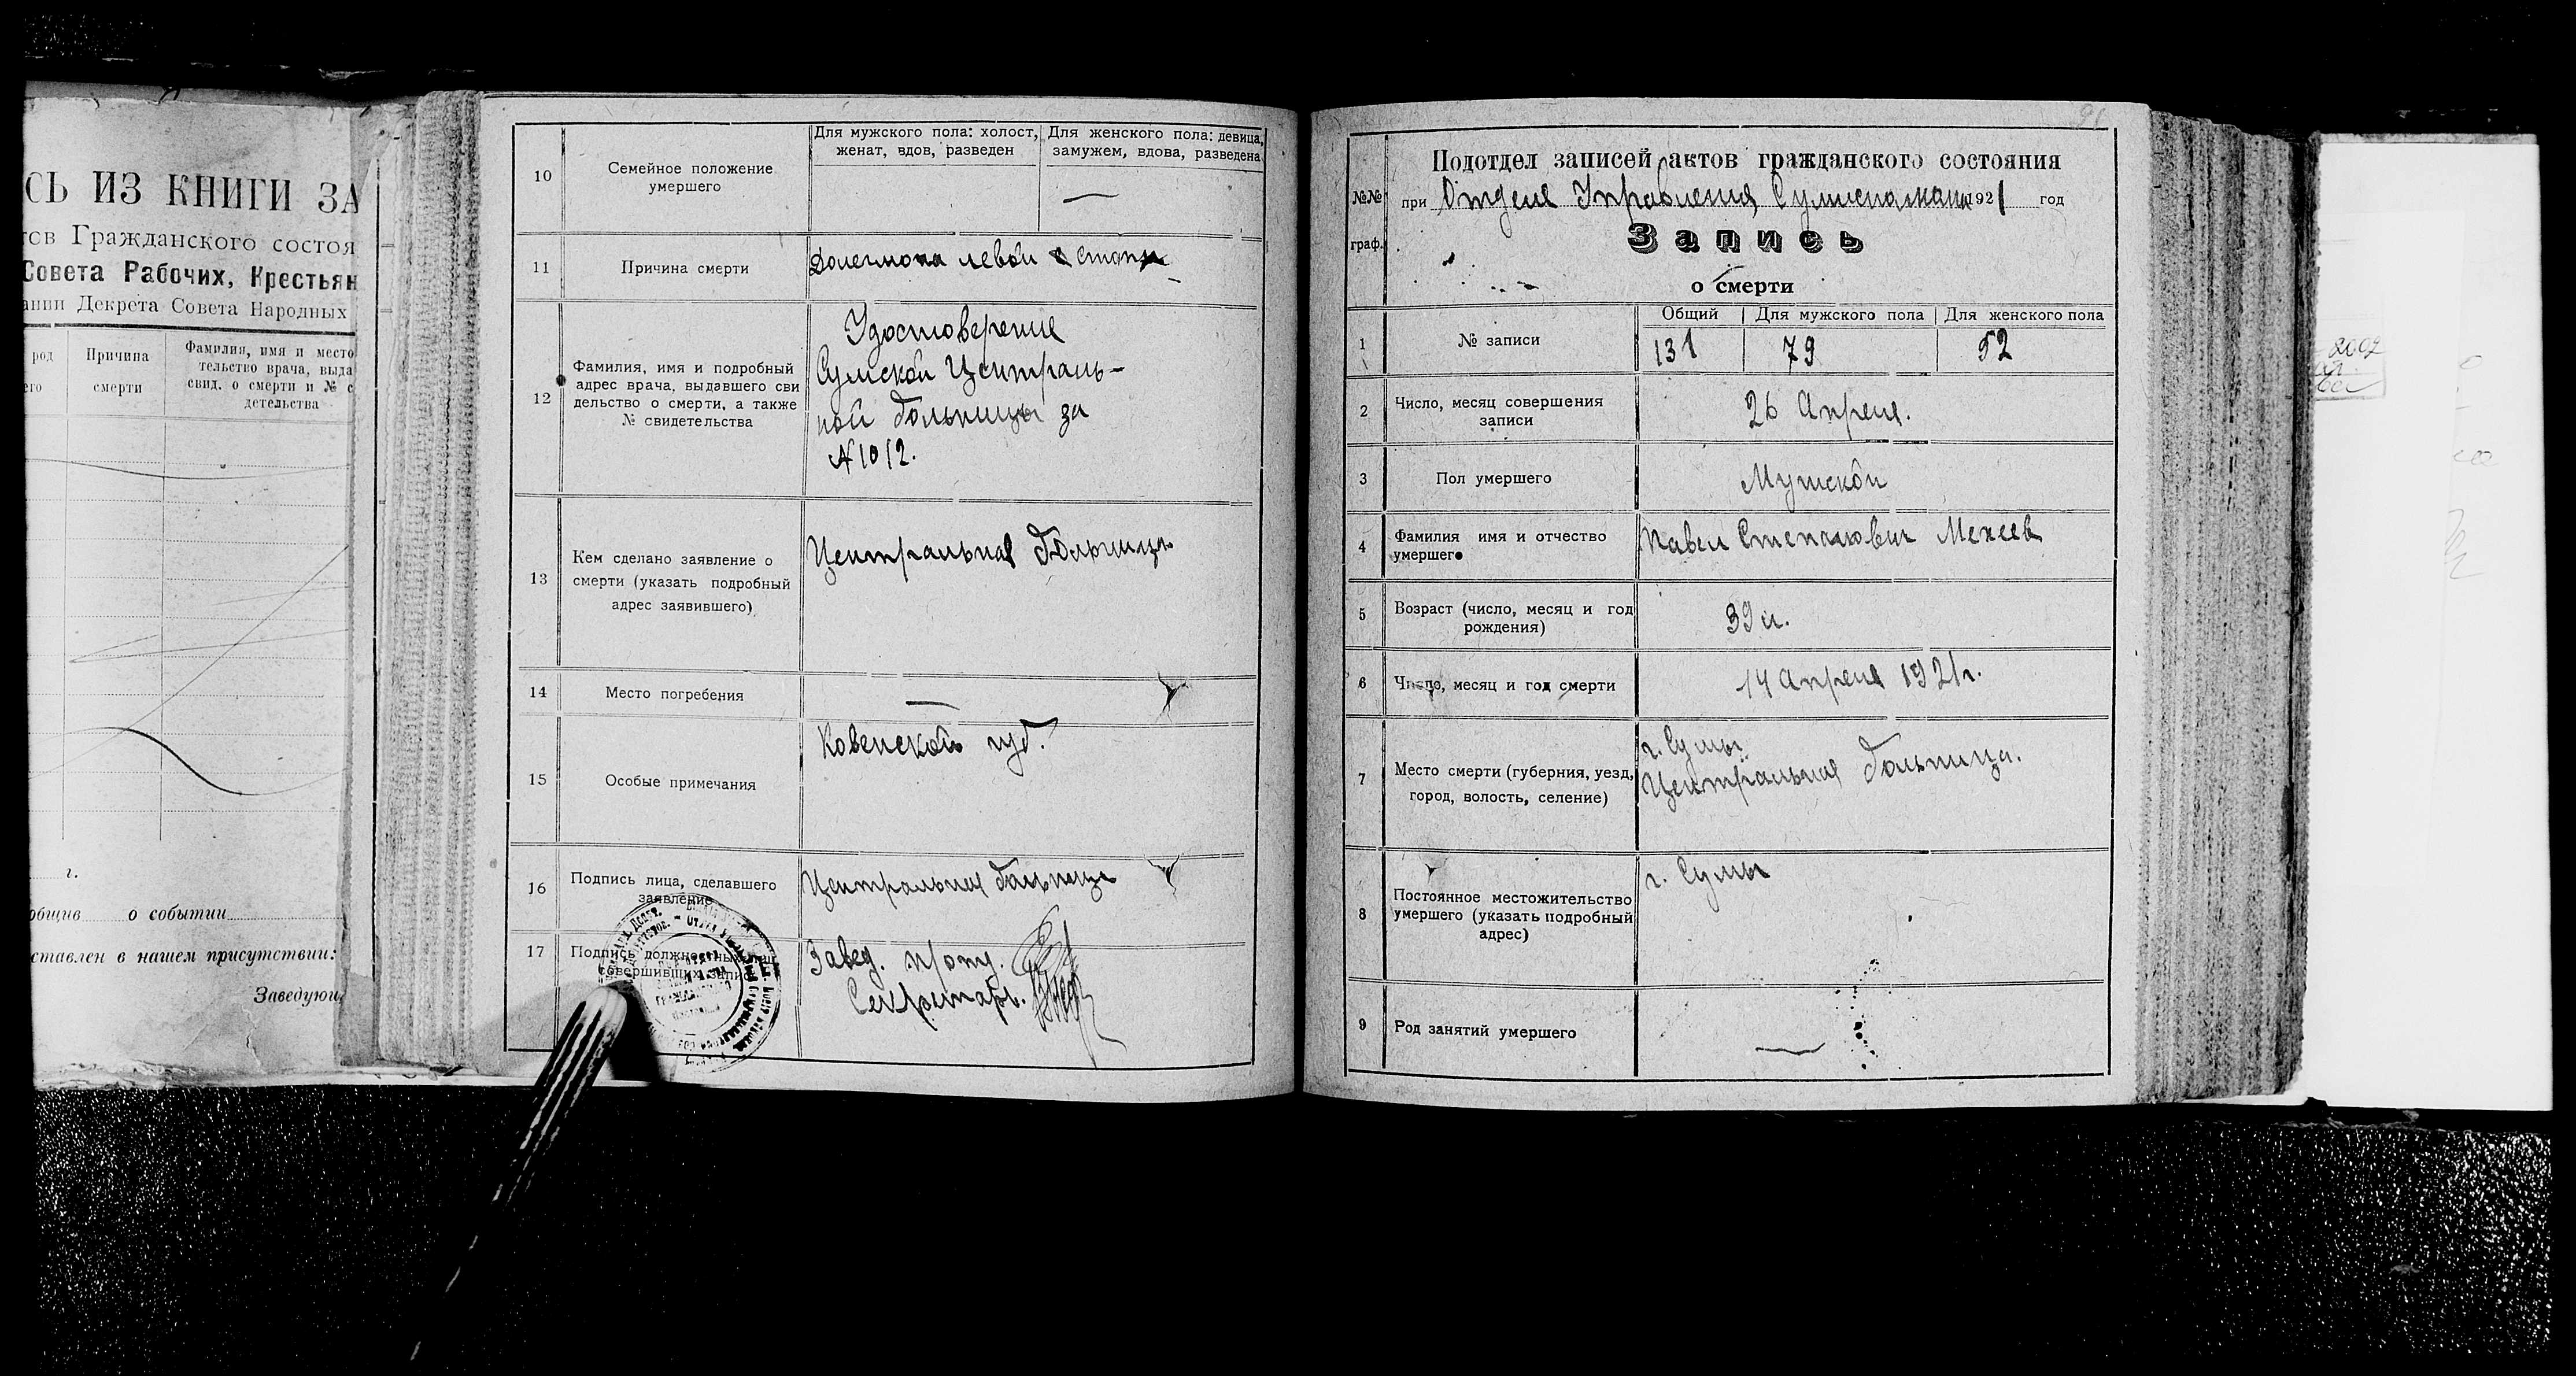 СЬ ИЗ КНИГИ ЗА
тов Гражданского состоя
Совета Рабочих, Крестьян
ании Декрета Совета Народных
род
его
Причина
смерти
Фамилия, имя и место
тельство врача, выда
свид. о смерти и № с
детельства
г.
общив о событии
ставлен в нашем присутствии:
Заведующ
10
Семейное положение
умершего
Для мужского пола: холост,
женат, вдов, разведен
Для женского пола: девица,
замужем, вдова, разведена
—
11
Причина смерти
левой стопы
12
Фамилия, имя и подробный
адрес врача, выдавшего сви
дельство о смерти, а также
№ свидетельства
Удостоверение
Сумской Централь-
ной больницы за
№ 1012.
13
Кем сделано заявление о
смерти (указать подробный
адрес заявившего)
Центральная больница
14
Место погребения
—
15
Особые примечания
Ковенской губ.
16
Подпись лица, сделавшего
заявление
Центральная больница
17
Подпись должностных лиц
совершивших запись
Завед. п/отд.
Секретарь.
91
№№
граф.
Подотдел записей актов гражданского состояния
при Отделе Управления 1921 год
Запись
о смерти
1
№ записи
Общий
Для мужского пола
Для женского пола
131
79
52
2
Число, месяц совершения
записи
26 Апреля.
3
Пол умершего
Мужской
4
Фамилия имя и отчество
умершего
Павел Степанович Мехеев
5
Возраст (число, месяц и год
рождения)
39 л.
6
Число, месяц и год смерти
14 апреля 1921 г.
7
Место смерти (губерния, уезд,
город, волость, селение)
г. Сумы
Центральная больница.
8
Постоянное местожительство
умершего (указать подробный
адрес)
г. Сумы
9
Род занятий умершего
—
2002